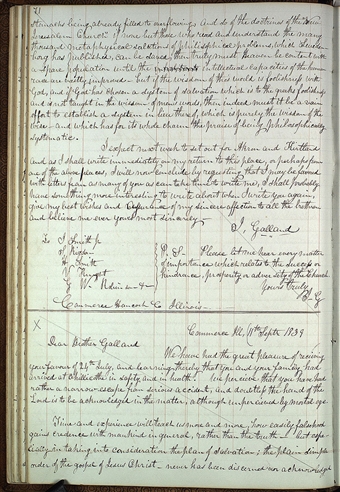 stomachs being already filled to overflowing. And so of the doctrines of the "New
Jerusalem Church" if none but those who read and understand the many
thousand metaphysical solutions of philosophical problems, which Sweden-
borg has published, can be saved, then truly must Heaven be content with
a sparse population until the intellectual capacities of the human
race are vastly improved — but if the wisdom of this world is foolishness with
God, and if God has chosen a system of salvation which is to the greeks foolishness
and is not taught in the wisdom of mans words, then indeed must it be a vain
effort to establish a system in lieu thereof, which is purely the wisdom of the
wise — and which has for its whole charm the praise of being philosophically
systematic.
I expect next week to set out for and Kirtland
and as I shall write immediately on my return to this place, or perhaps from
one of the above places, I will now conclude by requesting, that I may be favored
with letters from as many of you as can take time to write me, I shall probably
have something more interesting to write about when I write you again,
give my best wishes and of my sincere affection to all the brethren
and believe me ever yours most sincerely
I, Galland
To J Smith Jr
H. Smith
G W Robinson
Commerce Hancock Co Illinois
P. S. Please let me hear every matter
of importance which relates to the success or
hindrance, prosperity or adversity of the Church
Yours truly
I. G.
X
Commerce Ill. 11th Septr 1839
Dear Brother Galland
We have had the great pleasure of receiving
your favour of 24th July, and learning thereby that you and your family, had
arrived at Chillicothe in safety, and in health. We perceive that you have had
rather a narrow escape from serious accident, and doubtless the hand of the
Lord is to be acknowledged in the matter, although unperceived by mortal eye.
Time and experience will teach us more and more, how easily falsehood
gains credence with mankind in general, rather than the truth — but espe-
cially in taking into consideration the plan of salvation; the plain simple
order of the gospel of Jesus Christ — never has been discerned nor acknowledged